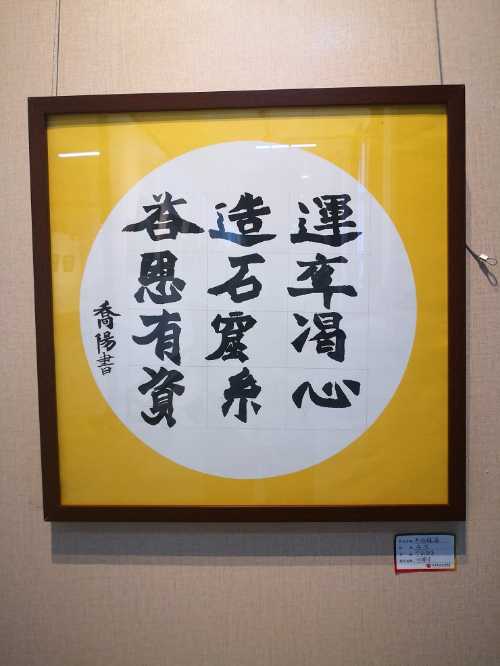 運率渴心
造石窟系
答恩有資
喬陽書